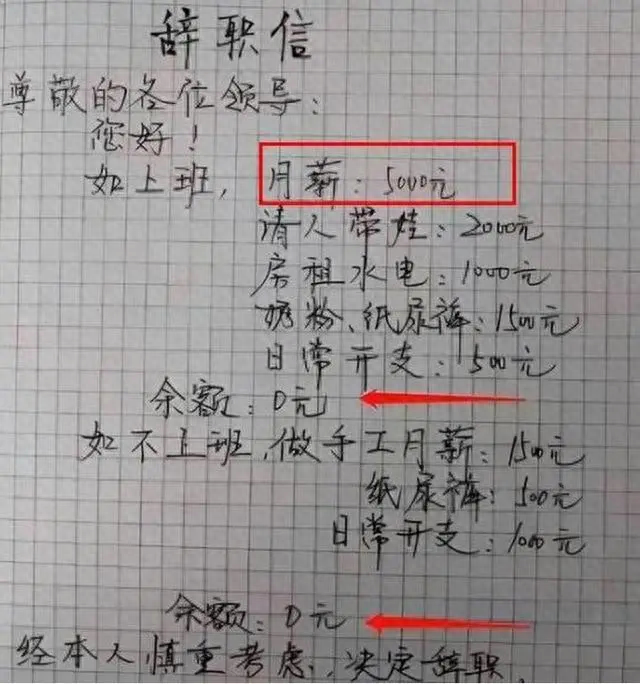 辞职信
尊敬的各位领导:
您好!
如上班,月薪:5000元
请人带娃:2000元
房租水电:1000元
奶粉、纸尿裤:1500元
日常开支:500元
余额:0元
如不上班,做手工月薪:1500元
纸尿裤:500元
日常开支:1000元
余额:0元
经本人慎重考虑,决定辞职,